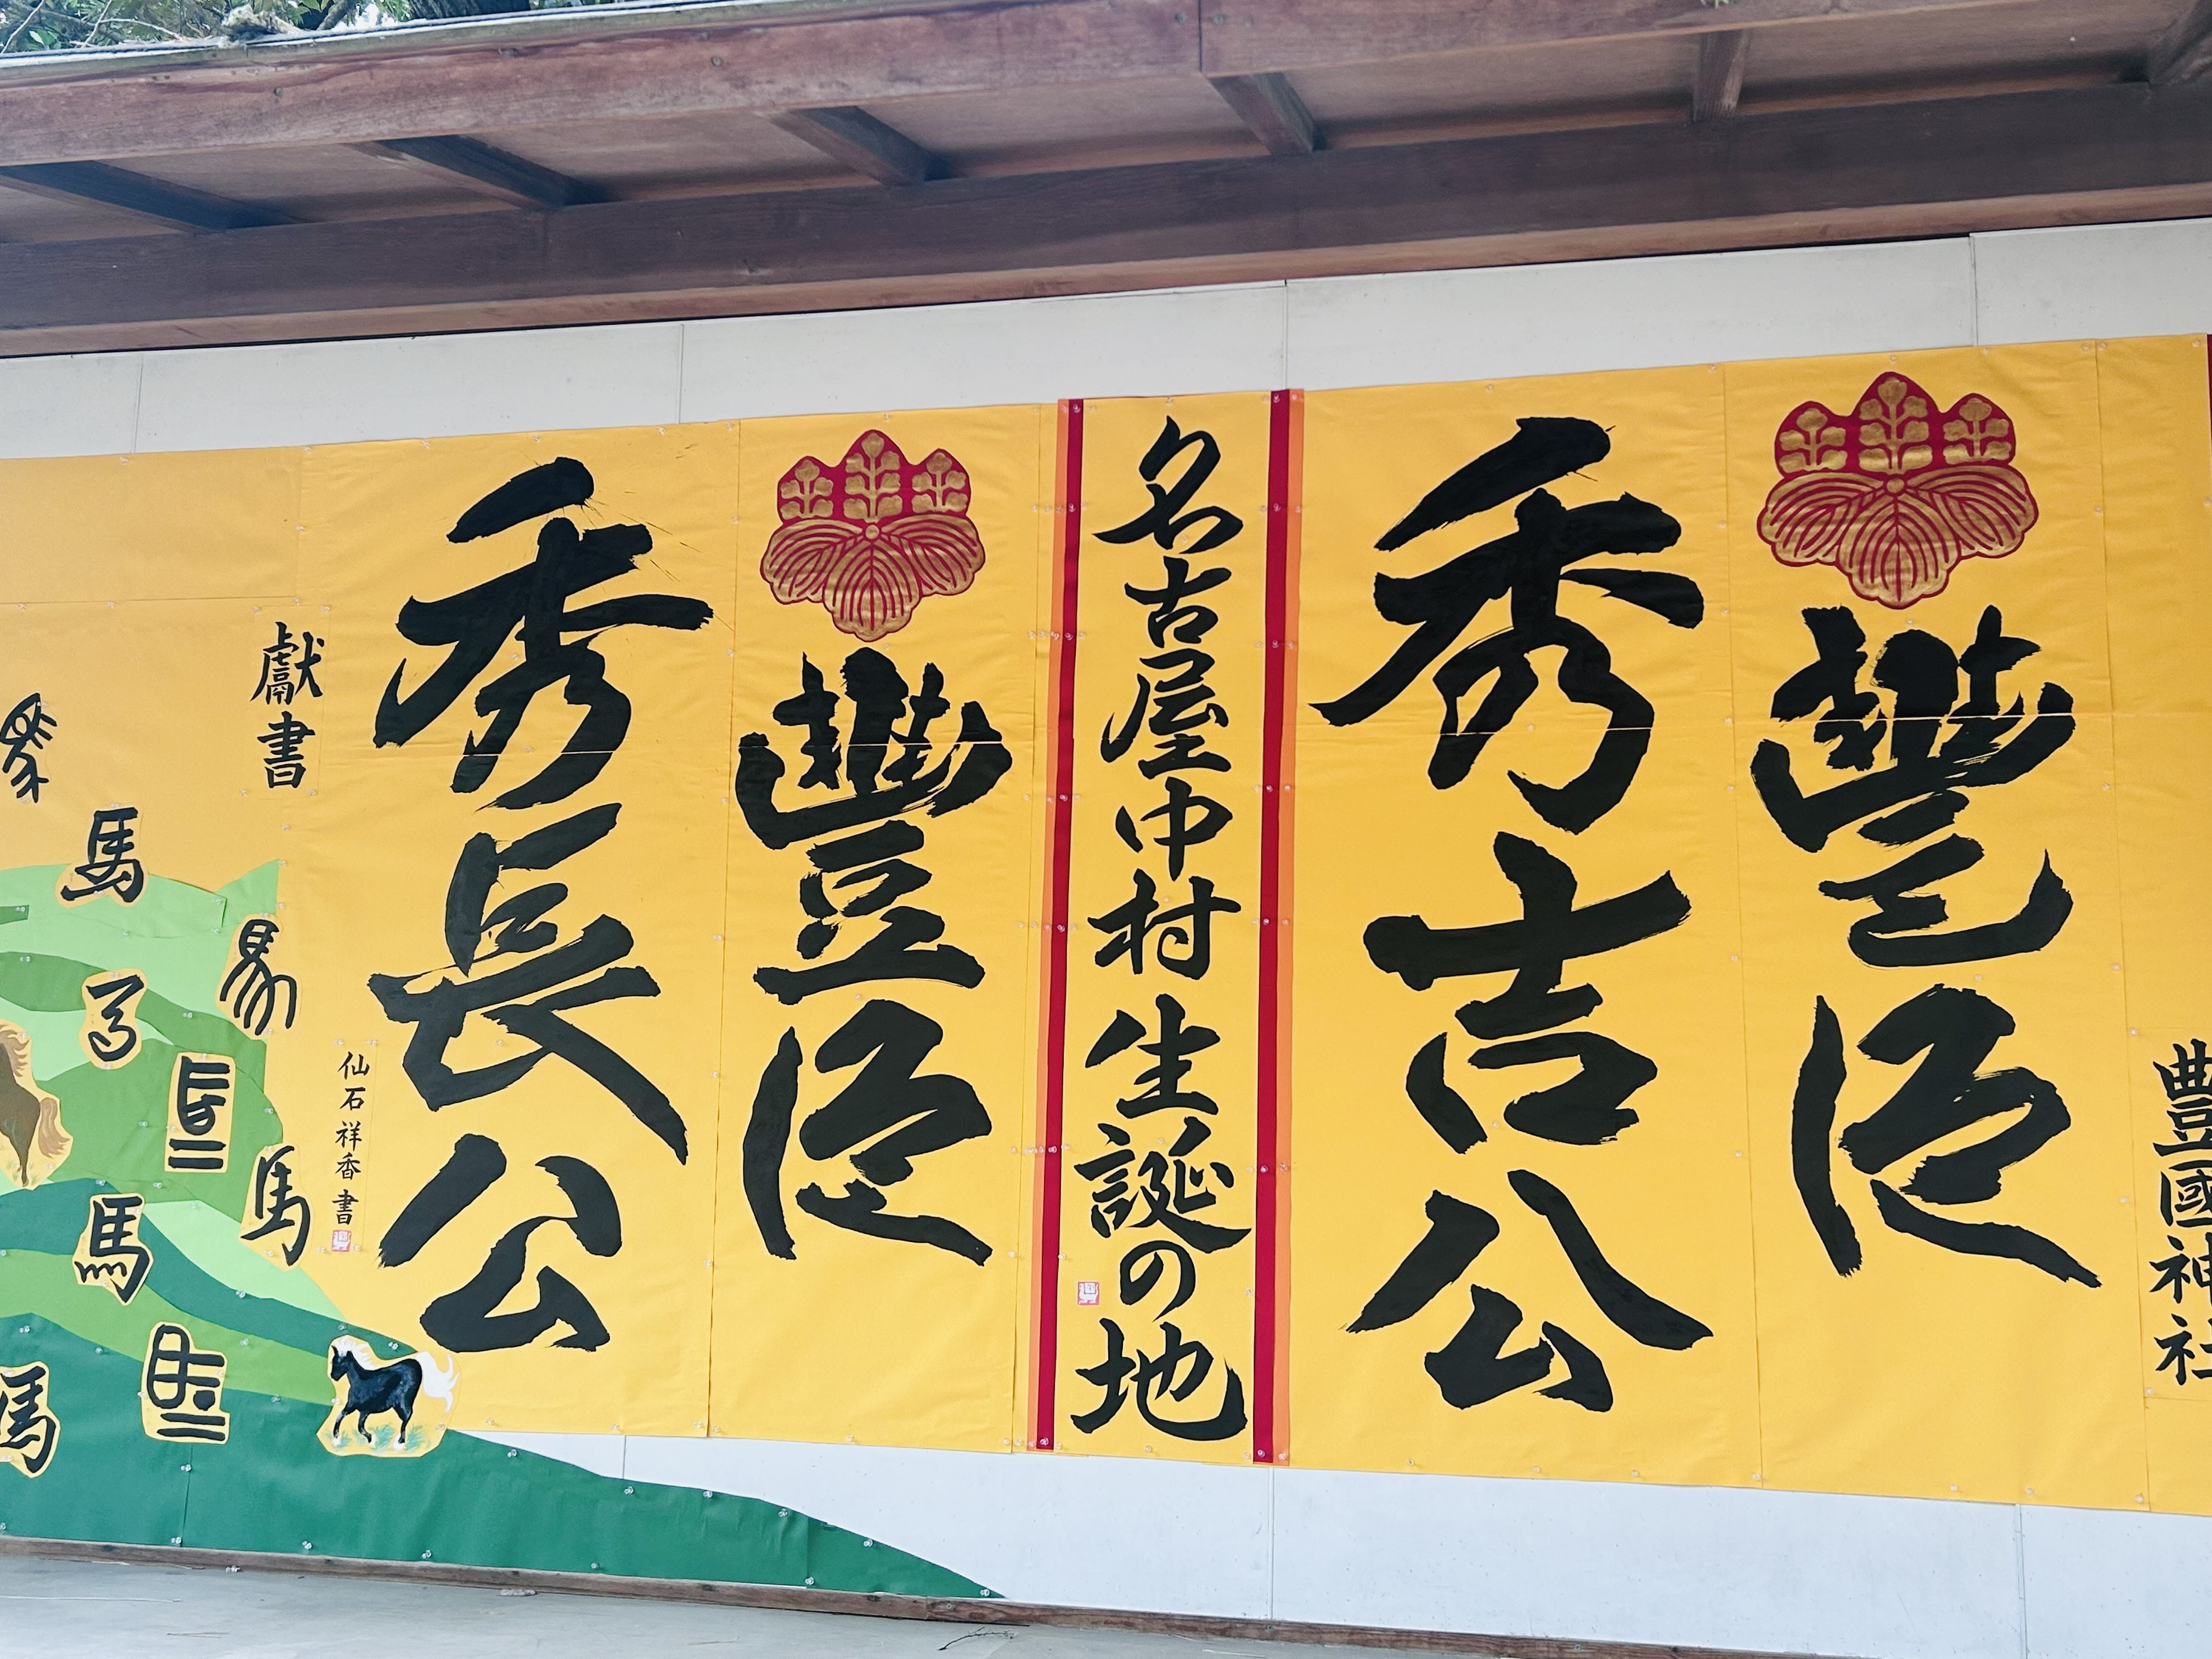 豊國神社
豐臣
秀吉公
名古屋中村生誕の地
豐臣
秀長公
仙石祥香書
獻書
馬
馬
馬
馬
馬